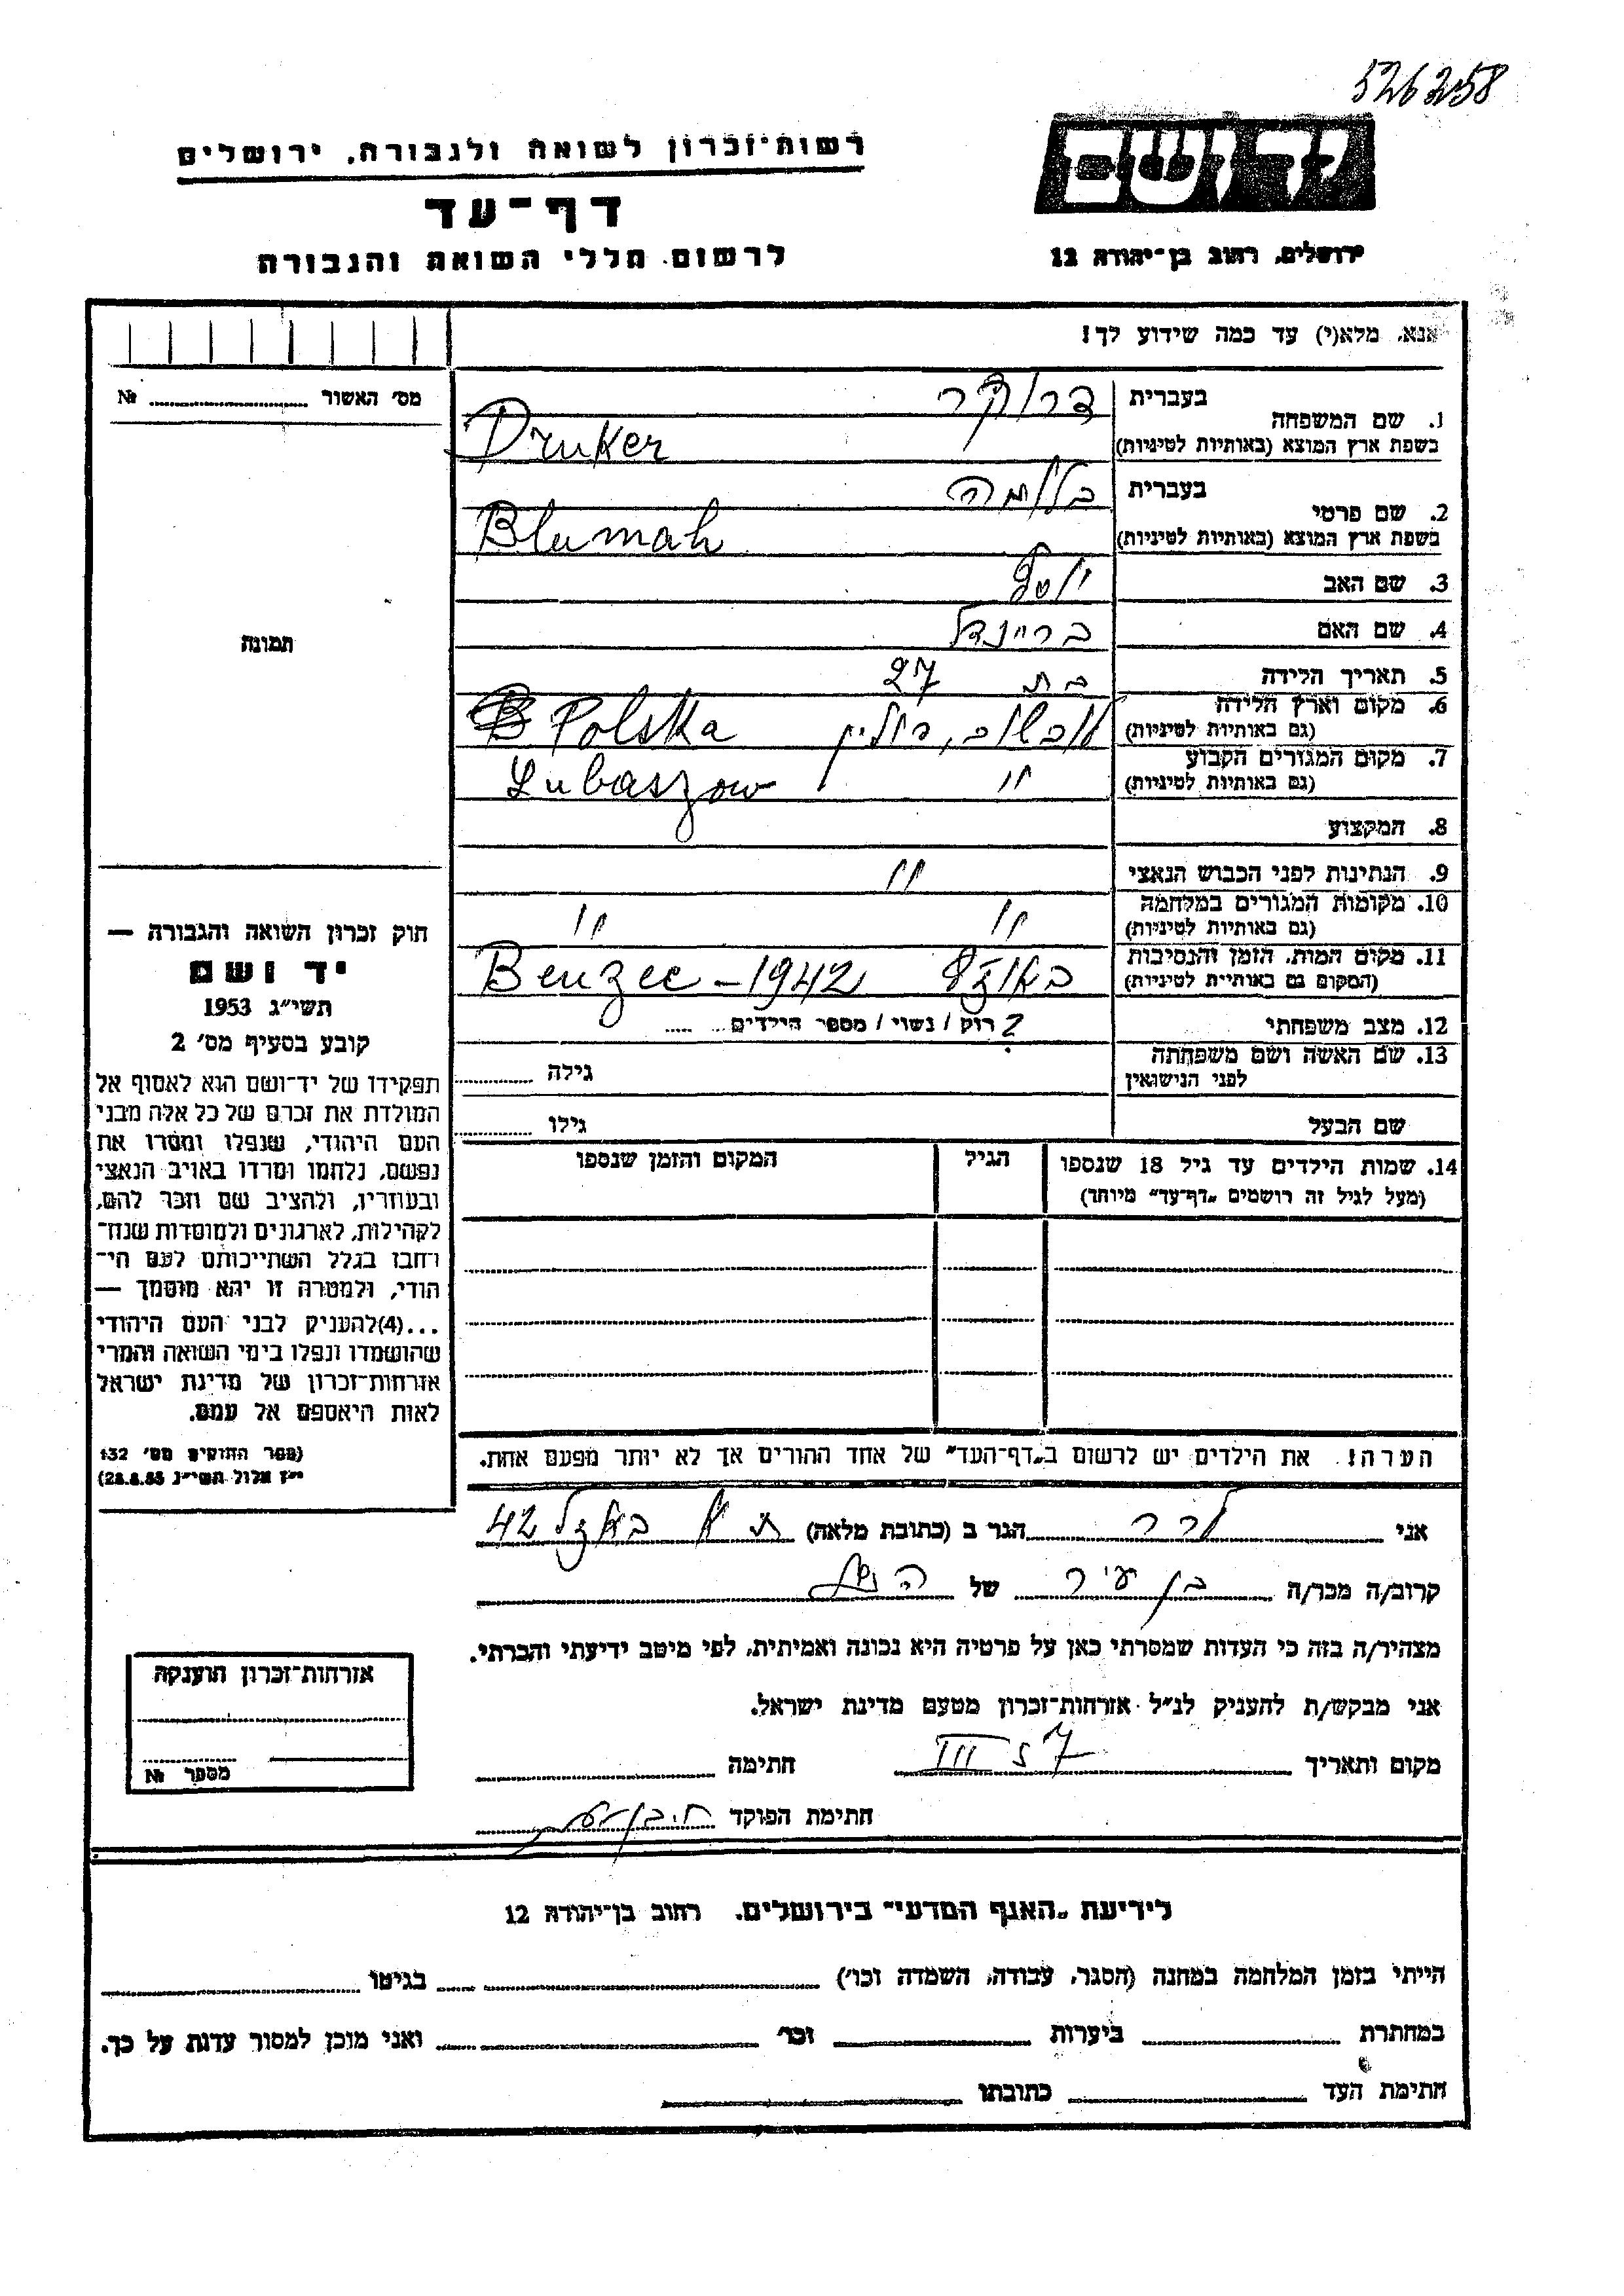 526258
רשות־זכרון לשואה ולגבורה, ירושלים
דף־עד
לרשום חללי השואה והגבורה
יד ושם
ירושלים, רחוב בן־יהודה 12
אנא, מלא(י) עד כמה שידוע לך!
מס׳ האשור № 
תמונה
1. שם המשפחה בעברית דרוקר
בשפת ארץ המוצא (באותיות לטיניות) Druker
2. שם פרטי בעברית בלומה
בשפת ארץ המוצא (באותיות לטיניות) Blumah
3. שם האב יוסף
4. שם האם בריינדל
5. תאריך הלידה בת 27
6. מקום וארץ הלידה (גם באותיות לטיניות) פולין Polska
7. מקום המגורים הקבוע (גם באותיות לטיניות) " Lubaszow
8. המקצוע
9. הנתינות לפני הכבוש הנאצי "
10. מקומות המגורים במלחמה (גם באותיות לטיניות) " "
11. מקום המות, הזמן והנסיבות (המקום גם באותיות לטיניות) Benzec - 1942
12. מצב משפחתי רוק / נשוי / מספר הילדים ?
13. שם האשה ושם משפחתה לפני הנישואין גילה
שם הבעל גילו
14. שמות הילדים עד גיל 18 שנספו
(מעל לגיל זה רושמים „דף־עד” מיוחד)
הגיל
המקום והזמן שנספו
הערה! את הילדים יש לרשום ב„דף־העד” של אחד ההורים אך לא יותר מפעם אחת.
חוק זכרון השואה והגבורה —
יד ושם
תשי״ג 1953
קובע בסעיף מס׳ 2
תפקידו של יד־ושם הוא לאסוף אל
המולדת את זכרם של כל אלה מבני
העם היהודי, שנפלו ומסרו את
נפשם, נלחמו ומרדו באויב הנאצי
ובעוזריו, ולהציב שם וזכר להם,
לקהילות, לארגונים ולמוסדות שנח־
רחבו בגלל השתייכותם לעם הי־
הודי, ולמטרה זו יהא מוסמך —
...(4) להעניק לבני העם היהודי
שהושמדו ונפלו בימי השואה והמרי
אזרחות־זכרון של מדינת ישראל
לאות היאספם אל עמם.
(ספר החוקים מס׳ 132
י״ז אלול תשי״ג 28.8.53)
אני לרר הגר ב (כתובת מלאה) ת א 42
קרוב/ה מכר/ה בן עיר של
מצהיר/ה בזה כי העדות שמסרתי כאן על פרטיה היא נכונה ואמיתית, לפי מיטב ידיעתי והכרתי.
אני מבקש/ת להעניק לנ״ל אזרחות־זכרון מטעם מדינת ישראל.
מקום ותאריך 57 III חתימה
חתימת הפוקד
אזרחות־זכרון הוענקה
מספר №
לידיעת „האגף המדעי” בירושלים, רחוב בן־יהודה 12
הייתי בזמן המלחמה במחנה (הסגר, עבודה, השמדה וכו׳) בגיטו
במחתרת ביערות וכו׳ ואני מוכן למסור עדות על כך.
חתימת העד כתובתו